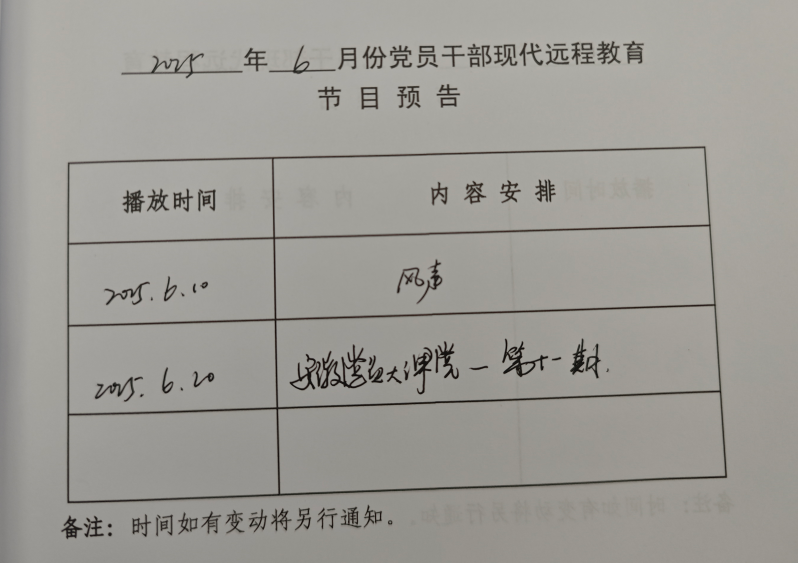 2025年6月份党员干部现代远程教育
节目预告
播放时间 内容安排
2025.6.10 风声
2025.6.20 安徽党员大课堂—第十一期.
备注：时间如有变动将另行通知。